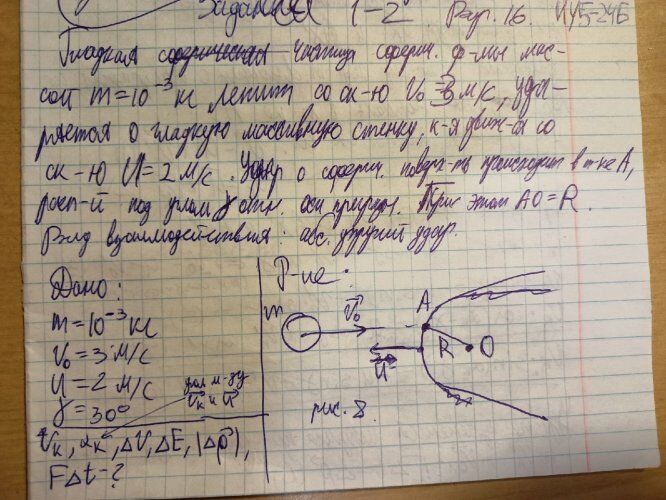 Задания 1-2. Вар. 16. ИУ5-24Б
Гладкая частица сферич. ф-мы мас-
сой m = 10⁻³ кг летит со ск-ю V₀ = 3 м/с, уда-
ряется о гладкую массивную стенку, к-я движ-ся со
ск-ю U = 2 м/с. Удар о сферич. поверх-ть происходит в т-ке A,
расп-й под углом γ отн. оси При этом AO = R.
Вид взаимодействия: абс. упругий удар.
Дано:
m = 10⁻³ кг
V₀ = 3 м/с
U = 2 м/с
γ = 30°
угол м-ду
V⃗к и U⃗
Vк, αк, ΔV, ΔE, |Δp⃗|,
FΔt - ?
Р-ие:
m
V⃗₀
A
R
O
U⃗
рис. 8.